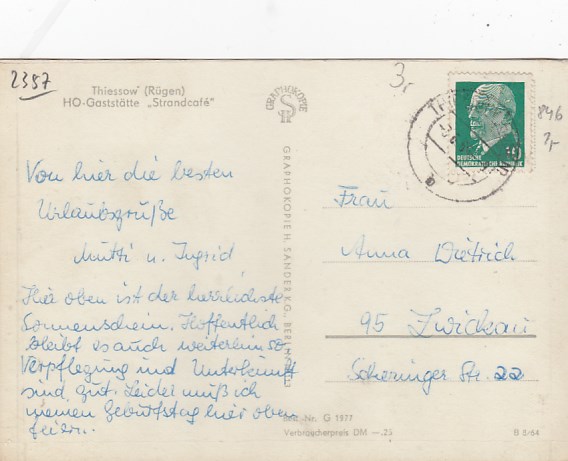 2357
Thiessow (Rügen)
HO-Gaststätte „Strandcafé"
Von hier die besten
Urlaubsgrüße
Mutti u. Ingrid
Hier oben ist der herrlichste
Sonnenschein. Hoffentlich
bleibt es auch weiterhin so
Verpflegung und Unterkunft
sind gut. Leider muß ich
meinen Geburtstag hier oben
feiern.
GRAPHOKOPIE
GRAPHOKOPIE H. SANDER KG., BERLIN
Best.-Nr. G 1977
Verbraucherpreis DM —.25
B 5/64
3,
846
2,-
10
DEUTSCHE
DEMOKRATISCHE REPUBLIK
Frau
Anna Dietrich
95 Zwickau
Scheringer Str. 22